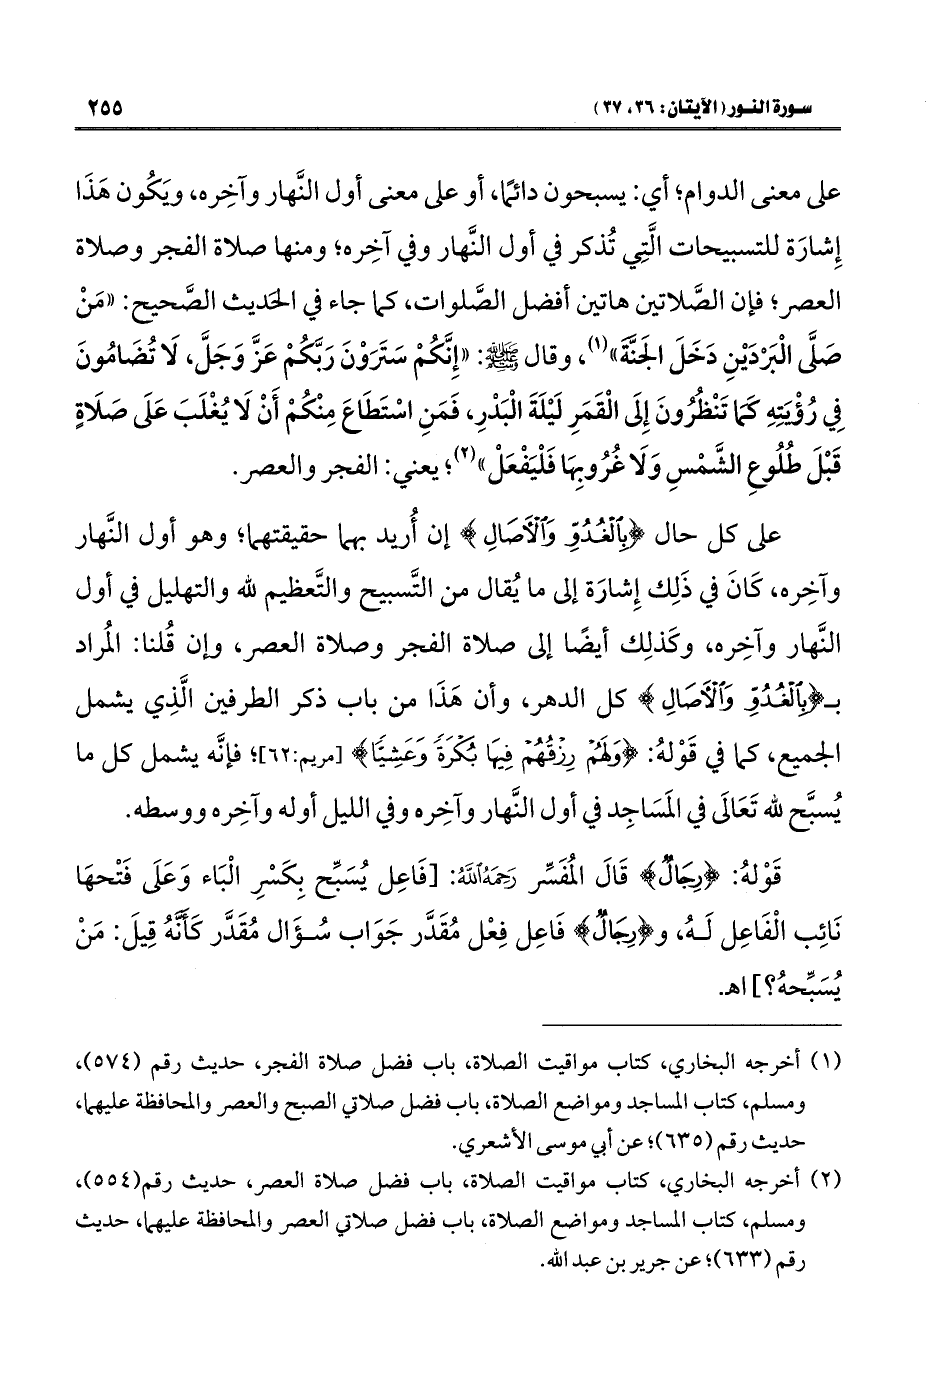 سورة النور (الآيتان: ٣٦، ٣٧) ٢٥٥
على معنى الدوام؛ أي: يسبحون دائمًا، أو على معنى أول النَّهار وآخِره، ويَكُون هَذَا
إشارَة للتسبيحات الَّتِي تُذكر في أول النَّهار وفي آخِره؛ ومنها صلاة الفجر وصلاة
العصر؛ فإن الصَّلاتين هاتين أفضل الصَّلوات، كما جاء في الحَديث الصَّحيح: «مَنْ
صَلَّى الْبَرْدَيْنِ دَخَلَ الجَنَّةَ»(١)، وقال ﷺ: «إِنَّكُمْ سَتَرَوْنَ رَبَّكُمْ عَزَّ وَجَلَّ، لَا تُضَامُونَ
فِي رُؤْيَتِهِ كَمَا تَنْظُرُونَ إِلَى الْقَمَرِ لَيْلَةَ الْبَدْرِ، فَمَنِ اسْتَطَاعَ مِنْكُمْ أَنْ لَا يُغْلَبَ عَلَى صَلَاةٍ
قَبْلَ طُلُوعِ الشَّمْسِ وَلَا غُرُوبِهَا فَلْيَفْعَلْ»(٢)؛ يعني: الفجر والعصر.
على كل حال ﴿بِٱلْغُدُوِّ وَٱلْأَصَالِ﴾ إن أُريد بهما حقيقتهما؛ وهو أول النَّهار
وآخِره، كَانَ في ذَلِك إشارَة إلى ما يُقال من التَّسبيح والتَّعظيم لله والتهليل في أول
النَّهار وآخِره، وكَذلِك أيضًا إلى صلاة الفجر وصلاة العصر، وإن قُلنا: المُراد
بـ﴿بِٱلْغُدُوِّ وَٱلْأَصَالِ﴾ كل الدهر، وأن هَذَا من باب ذكر الطرفين الَّذِي يشمل
الجميع، كما في قَوْلهُ: ﴿وَلَهُمْ رِزْقُهُمْ فِيهَا بُكْرَةً وَعَشِيًّا﴾ [مريم:٦٢]؛ فإنَّه يشمل كل ما
يُسبَّح لله تَعَالَى في المَسَاجِد في أول النَّهار وآخِره وفي الليل أوله وآخِره ووسطه.
قَوْلهُ: ﴿رِجَالٌ﴾ قَالَ المُفَسِّر رَحِمَهُ اللَّهُ: [فَاعِل يُسَبِّح بِكَسْرِ الْبَاء وَعَلَى فَتْحهَا
نَائِب الْفَاعِل لَـهُ، و﴿رِجَالٌ﴾ فَاعِل فِعْل مُقَدَّر جَوَاب سُـؤَال مُقَدَّر كَأَنَّهُ قِيلَ: مَنْ
يُسَبِّحهُ؟] اهـ.
(١) أخرجه البخاري، كتاب مواقيت الصلاة، باب فضل صلاة الفجر، حديث رقم (٥٧٤)،
ومسلم، كتاب المساجد ومواضع الصلاة، باب فضل صلاتي الصبح والعصر والمحافظة عليهما،
حديث رقم (٦٣٥)؛ عن أبي موسى الأشعري.
(٢) أخرجه البخاري، كتاب مواقيت الصلاة، باب فضل صلاة العصر، حديث رقم(٥٥٤)،
ومسلم، كتاب المساجد ومواضع الصلاة، باب فضل صلاتي العصر والمحافظة عليهما، حديث
رقم (٦٣٣)؛ عن جرير بن عبد الله.